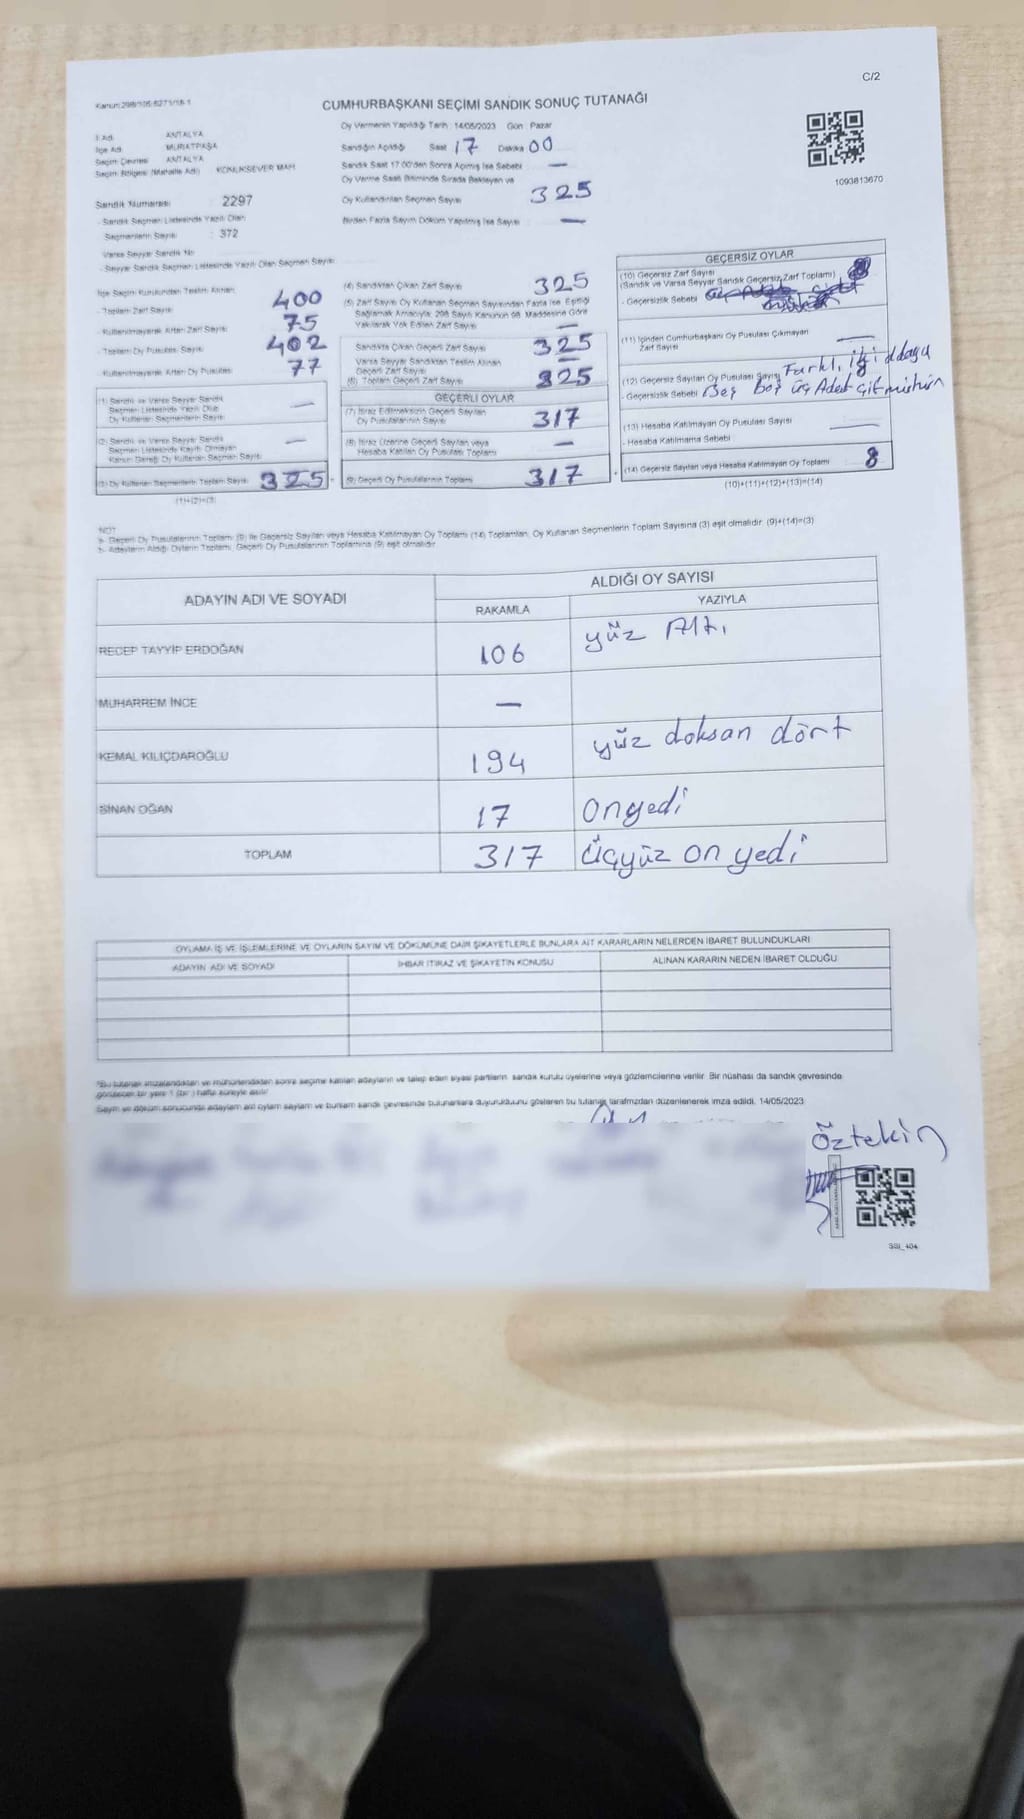 C/2
Kanun:298/106-6271/18-1
CUMHURBAŞKANI SEÇİMİ SANDIK SONUÇ TUTANAĞI
Oy Vermenin Yapıldığı Tarih : 14/05/2023 Gün : Pazar
İl Adı ANTALYA
İlçe Adı MURATPAŞA
Seçim Çevresi ANTALYA
Seçim Bölgesi (Mahalle Adı) KONUKSEVER MAH
Sandık Numarası : 2297
Sandık Seçmen Listesinde Yazılı Olan
Seçmenlerin Sayısı : 372
Varsa Seyyar Sandık No
- Seyyar Sandık Seçmen Listesinde Yazılı Olan Seçmen Sayısı
Sandığın Açıldığı Saat 17 Dakika 00
Sandık Saat 17.00'den Sonra Açılmış İse Sebebi —
Oy Verme Saati Bitiminde Sırada Bekleyen ve
Oy Kullandırılan Seçmen Sayısı 325
Birden Fazla Sayım Döküm Yapılmış İse Sayısı —
1093813670
İlçe Seçim Kurulundan Teslim Alınan
- Toplam Zarf Sayısı 400
- Kullanılmayarak Artan Zarf Sayısı 75
- Toplam Oy Pusulası Sayısı 402
- Kullanılmayarak Artan Oy Pusulası 77
(1) Sandık ve Varsa Seyyar Sandık
Seçmen Listesinde Yazılı Olup
Oy Kullanan Seçmenlerin Sayısı —
(2) Sandık ve Varsa Seyyar Sandık
Seçmen Listesinde Kayıtlı Olmayan
Kanun Gereği Oy Kullanan Seçmen Sayısı —
(3) Oy Kullanan Seçmenlerin Toplam Sayısı 325
(1)+(2)=(3)
(4) Sandıktan Çıkan Zarf Sayısı 325
(5) Zarf Sayısı Oy Kullanan Seçmen Sayısından Fazla İse, Eşitliği
Sağlamak Amacıyla, 298 Sayılı Kanunun 98. Maddesine Göre
Yakılarak Yok Edilen Zarf Sayısı —
Sandıkta Çıkan Geçerli Zarf Sayısı 325
Varsa Seyyar Sandıktan Teslim Alınan
Geçerli Zarf Sayısı —
(6) Toplam Geçerli Zarf Sayısı 325
GEÇERLİ OYLAR
(7) İtiraz Edilmeksizin Geçerli Sayılan
Oy Pusulalarının Sayısı 317
(8) İtiraz Üzerine Geçerli Sayılan veya
Hesaba Katılan Oy Pusulası Toplamı —
(9) Geçerli Oy Pusulalarının Toplamı 317
GEÇERSİZ OYLAR
(10) Geçersiz Zarf Sayısı
(Sandık ve Varsa Seyyar Sandık Geçersiz Zarf Toplamı)
- Geçersizlik Sebebi
(11) İçinden Cumhurbaşkanı Oy Pusulası Çıkmayan
Zarf Sayısı —
(12) Geçersiz Sayılan Oy Pusulası Sayısı 8
- Geçersizlik Sebebi Farklı, iki
Beş Boş üç Adet
(13) Hesaba Katılmayan Oy Pusulası Sayısı —
- Hesaba Katılmama Sebebi
(14) Geçersiz Sayılan veya Hesaba Katılmayan Oy Toplamı 8
(10)+(11)+(12)+(13)=(14)
NOT
a- Geçerli Oy Pusulalarının Toplamı (9) ile Geçersiz Sayılan veya Hesaba Katılmayan Oy Toplamı (14) Toplamları, Oy Kullanan Seçmenlerin Toplam Sayısına (3) eşit olmalıdır. (9)+(14)=(3)
b- Adayların Aldığı Oyların Toplamı, Geçerli Oy Pusulalarının Toplamına (9) eşit olmalıdır.
ADAYIN ADI VE SOYADI
ALDIĞI OY SAYISI
RAKAMLA YAZIYLA
RECEP TAYYİP ERDOĞAN 106 yüz Altı
MUHARREM İNCE —
KEMAL KILIÇDAROĞLU 194 yüz doksan dört
SİNAN OĞAN 17 onyedi
TOPLAM 317 üçyüz on yedi
OYLAMA İŞ VE İŞLEMLERİNE VE OYLARIN SAYIM VE DÖKÜMÜNE DAİR ŞİKAYETLERLE BUNLARA AİT KARARLARIN NELERDEN İBARET BULUNDUKLARI
ADAYIN ADI VE SOYADI İHBAR İTİRAZ VE ŞİKAYETİN KONUSU ALINAN KARARIN NEDEN İBARET OLDUĞU
*Bu tutanak imzalandıktan ve mühürlendikten sonra seçime katılan adayların ve talep eden siyasi partilerin sandık kurulu üyelerine veya gözlemcilerine verilir. Bir nüshası da sandık çevresinde
görülecek bir yere 1 (bir) hafta süreyle asılır.
Sayım ve döküm sonucunda adayların aldıkları oyların sayıları ve bunların sandık çevresinde bulunanlara duyurulduğunu gösteren bu tutanak tarafımızdan düzenlenerek imza edildi. 14/05/2023
Öztekin
SSI_404